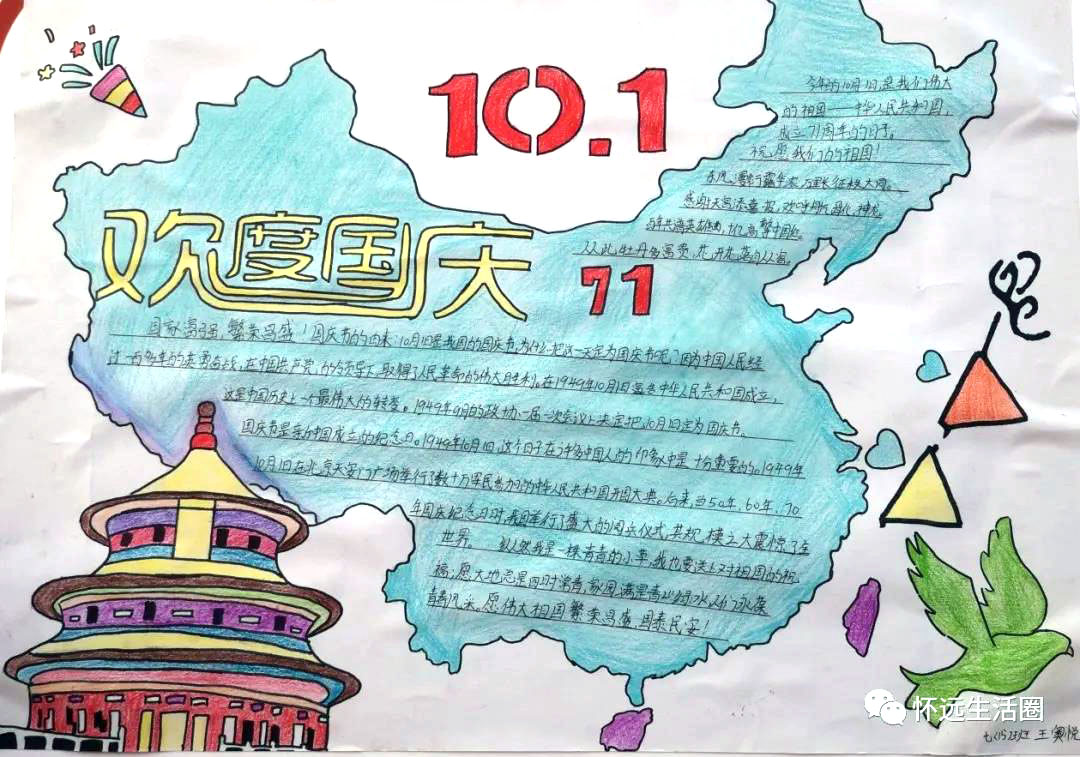 10.1
今年的10月1日是我们伟大
的祖国——中华人民共和国,
成立71周年的日子,
祝愿我们的祖国!
万里长征换大河。
欢度国庆
71
从此牡丹多富贵,花开花落
国家富强,繁荣昌盛!国庆节的由来:10月1日是我国的国庆节,为什么把这一天定为国庆节呢?因为中国人民经
过一百多年的英勇奋战,在中国共产党,的领导下,取得了人民革命的伟大胜利。在1949年10月1日宣告中华人民共和国成立,
这是中国历史上一个最伟大的转变。1949年9月的政协一届一次会议上决定把10月1日定为国庆节。
国庆节是新中国成立的纪念日。1949年10月1日,这个日子在许多中国人的印象中是十分重要的。1949年
10月1日在北京天安门广场举行了数十万军民参加的中华人民共和国开国大典。后来,当50年,60年,70
年国庆纪念日时,我国举行了盛大的阅兵仪式,其规模之大震惊了全
世界。 虽然我是一棵青青的小草,我也要送上对祖国的祝
福:愿大地总是四时常青,家园满是青山绿水,人们永葆
青春风采,愿伟大祖国繁荣昌盛,国泰民安!
怀远生活圈
七(15)班 王奥悦